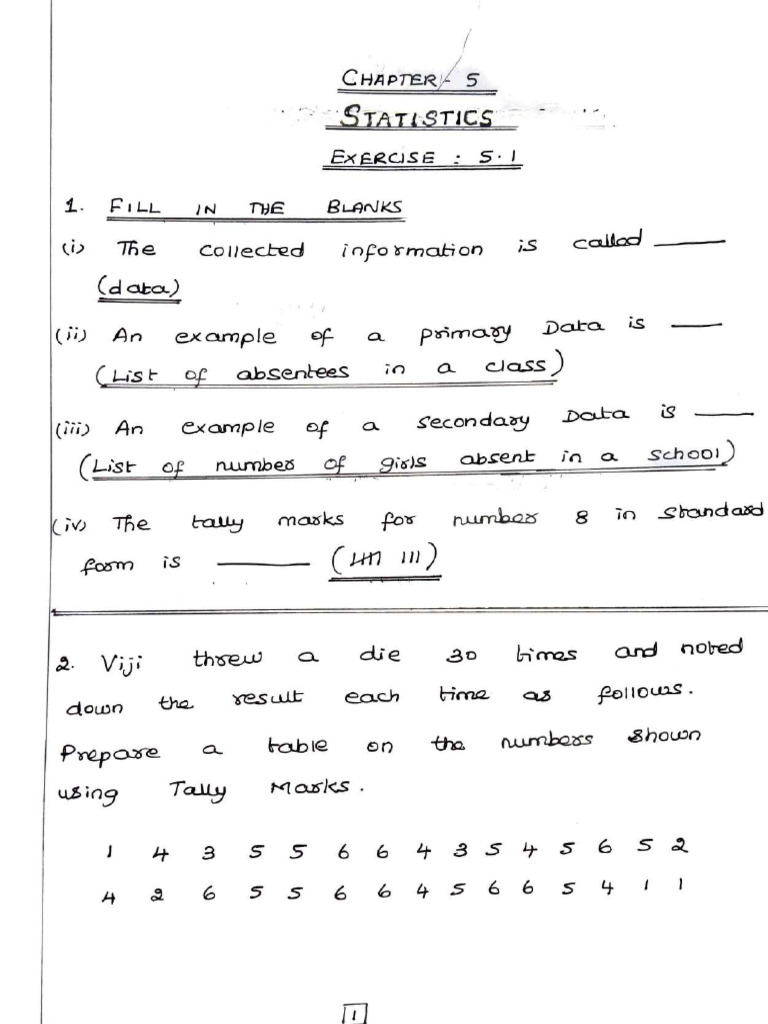 CHAPTER - 5
STATISTICS
EXERCISE : 5.1
1. FILL IN THE BLANKS
(i) The collected information is called ______
(data)
(ii) An example of a primary Data is ____
(List of absentees in a class)
(iii) An example of a secondary Data is ____
(List of number of girls absent in a school)
(iv) The tally marks for number 8 in standard
form is ______ (𝍸 III)
2. Viji threw a die 30 times and noted
down the result each time as follows.
Prepare a table on the numbers shown
using Tally Marks.
1 4 3 5 5 6 6 4 3 5 4 5 6 5 2
4 2 6 5 5 6 6 4 5 6 6 5 4 1 1
1